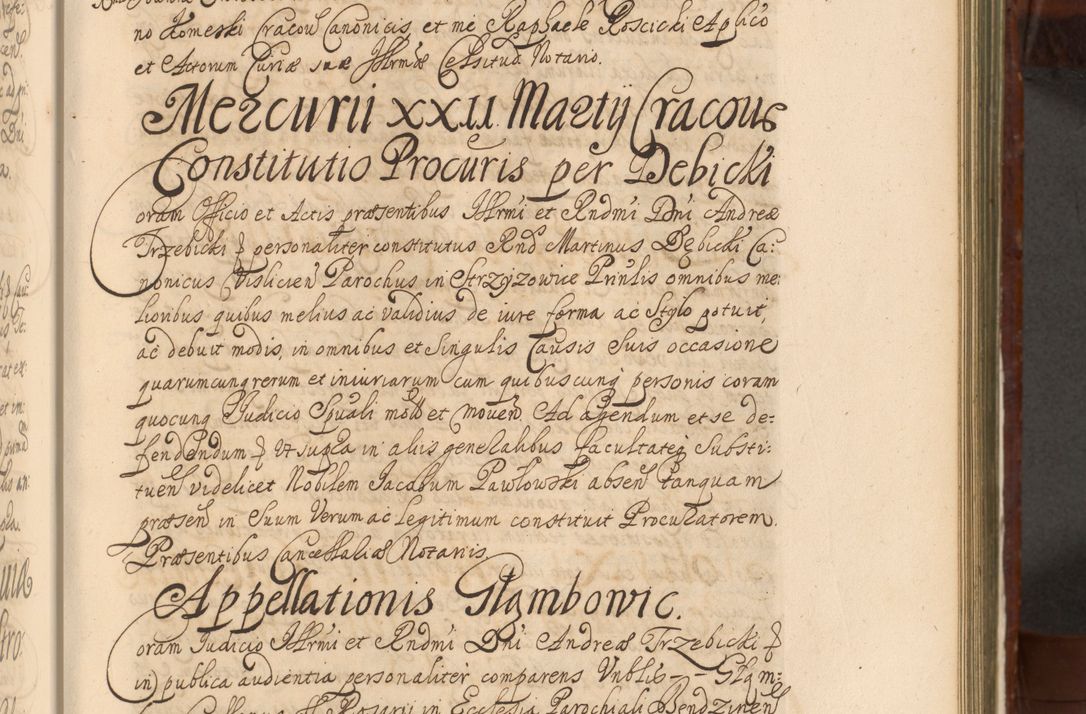 no Komerski Cracoŭ Canonicis, et me Raphaele Roscicki Aplico
et Actorum Curiæ suæ Illrmæ Celsitud Notario.
Mercurii XXII Martij Cracous
Constitutio Procuris per Debicki
Coram Officio et Actis præsentibus Illrmi et Rndmi Dni Andreæ
Trzebicki & personaliter constitutus Rnd Martinus Dębicki Ca:
nonicus Visliceñ Parochus in Strzyżowice Prinlis omnibus me:
lioribus quibus melius ac validius de iure forma ac Stylo potuit,
ac debuit modis, in omnibus et Singulis Causis Suis occasione
quarumcunq rerum et iniuriarum cum quibuscunq personis coram
quocunq Iudicio Spuali moto et moveñ Ad agendum et se de:
fendendum & Ut supra in aliis generalibus facultateq Substi:
tueñ videlicet Nobilem Iacobum Pawłowski absen tanquam
præsen in Suum Verum ac legitimum constituit Procuratorem.
Præsentibus Cancellariæ Notariis
Appellationis Głąmbowic.
Coram Iudicio Illrmi et Rndmi Dni Andreæ Trzebicki &
in publica audientia personaliter comparens Vnblis Głąm:
Rosarii in Ecclesia Parochiali Bendzineñ